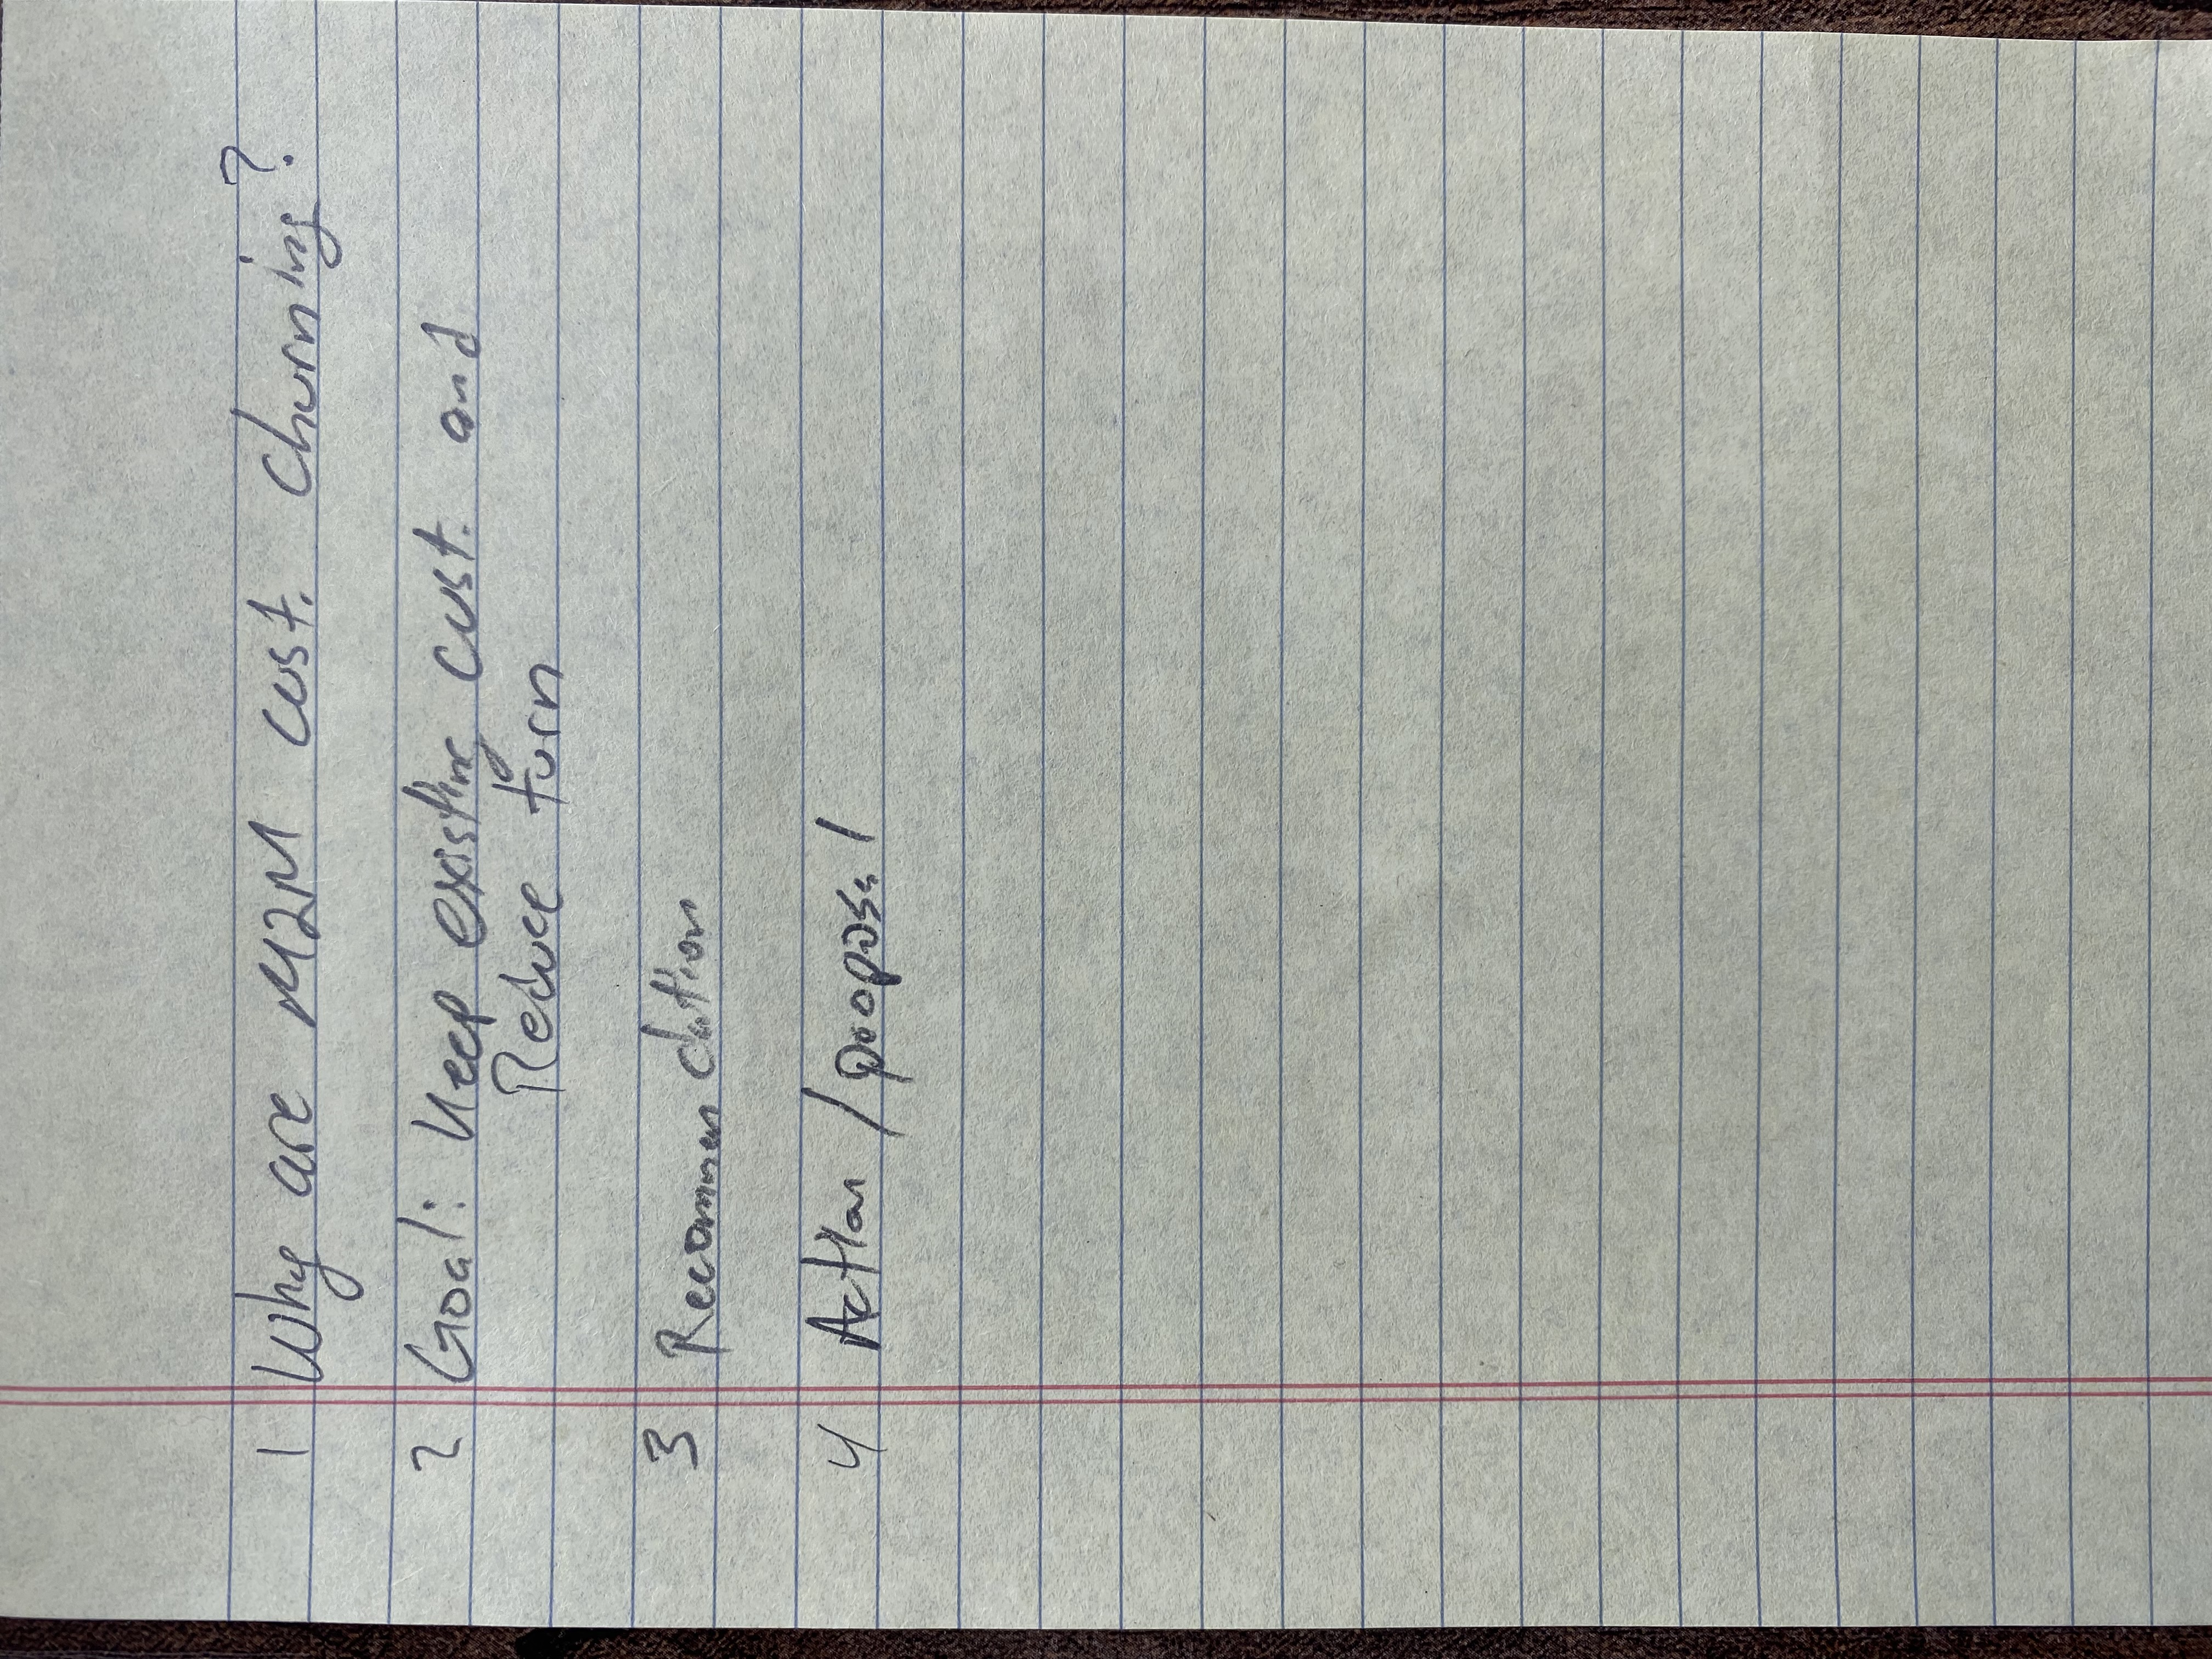 1 Why are M2M cust. churning?
2 Goal: Keep existing cust. and
Reduce turn
3 Recommendation
4 Action / proposal